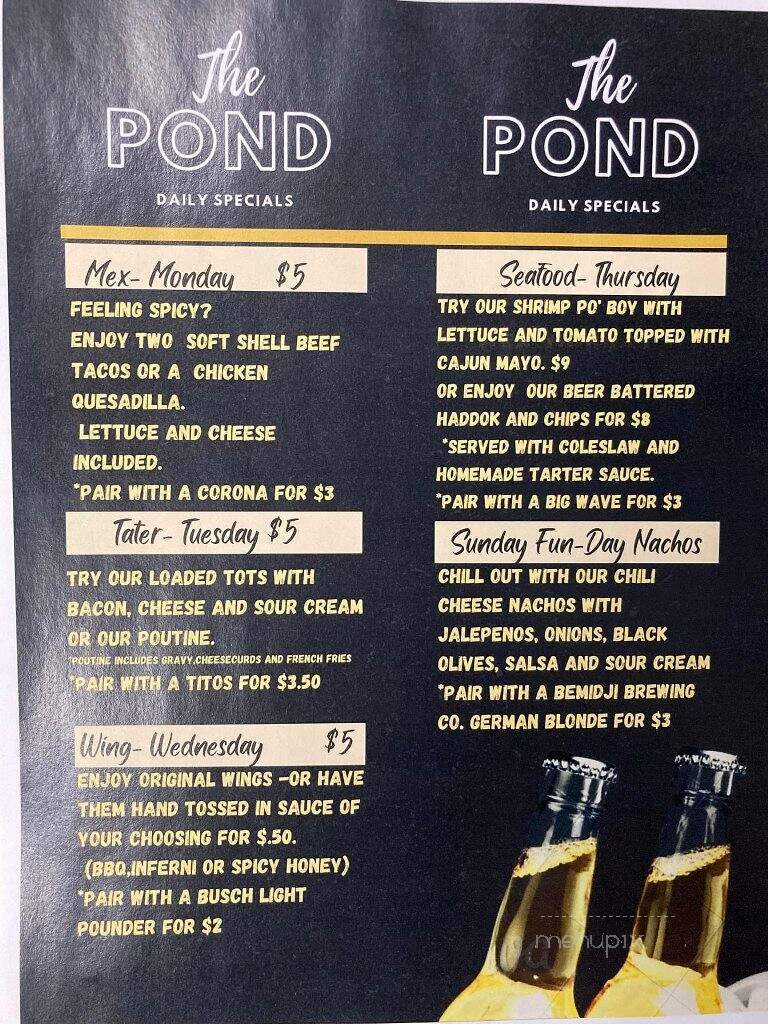 The
POND
DAILY SPECIALS
Mex- Monday $5
FEELING SPICY?
ENJOY TWO SOFT SHELL BEEF
TACOS OR A CHICKEN
QUESADILLA.
LETTUCE AND CHEESE
INCLUDED.
*PAIR WITH A CORONA FOR $3
Tater- Tuesday $5
TRY OUR LOADED TOTS WITH
BACON, CHEESE AND SOUR CREAM
OR OUR POUTINE.
*POUTINE INCLUDES GRAVY,CHEESECURDS AND FRENCH FRIES
*PAIR WITH A TITOS FOR $3.50
Wing- Wednesday $5
ENJOY ORIGINAL WINGS -OR HAVE
THEM HAND TOSSED IN SAUCE OF
YOUR CHOOSING FOR $.50.
(BBQ,INFERNI OR SPICY HONEY)
*PAIR WITH A BUSCH LIGHT
POUNDER FOR $2
The
POND
DAILY SPECIALS
Seafood- Thursday
TRY OUR SHRIMP PO' BOY WITH
LETTUCE AND TOMATO TOPPED WITH
CAJUN MAYO. $9
OR ENJOY OUR BEER BATTERED
HADDOK AND CHIPS FOR $8
*SERVED WITH COLESLAW AND
HOMEMADE TARTER SAUCE.
*PAIR WITH A BIG WAVE FOR $3
Sunday Fun-Day Nachos
CHILL OUT WITH OUR CHILI
CHEESE NACHOS WITH
JALEPENOS, ONIONS, BLACK
OLIVES, SALSA AND SOUR CREAM
*PAIR WITH A BEMIDJI BREWING
CO. GERMAN BLONDE FOR $3
menupix